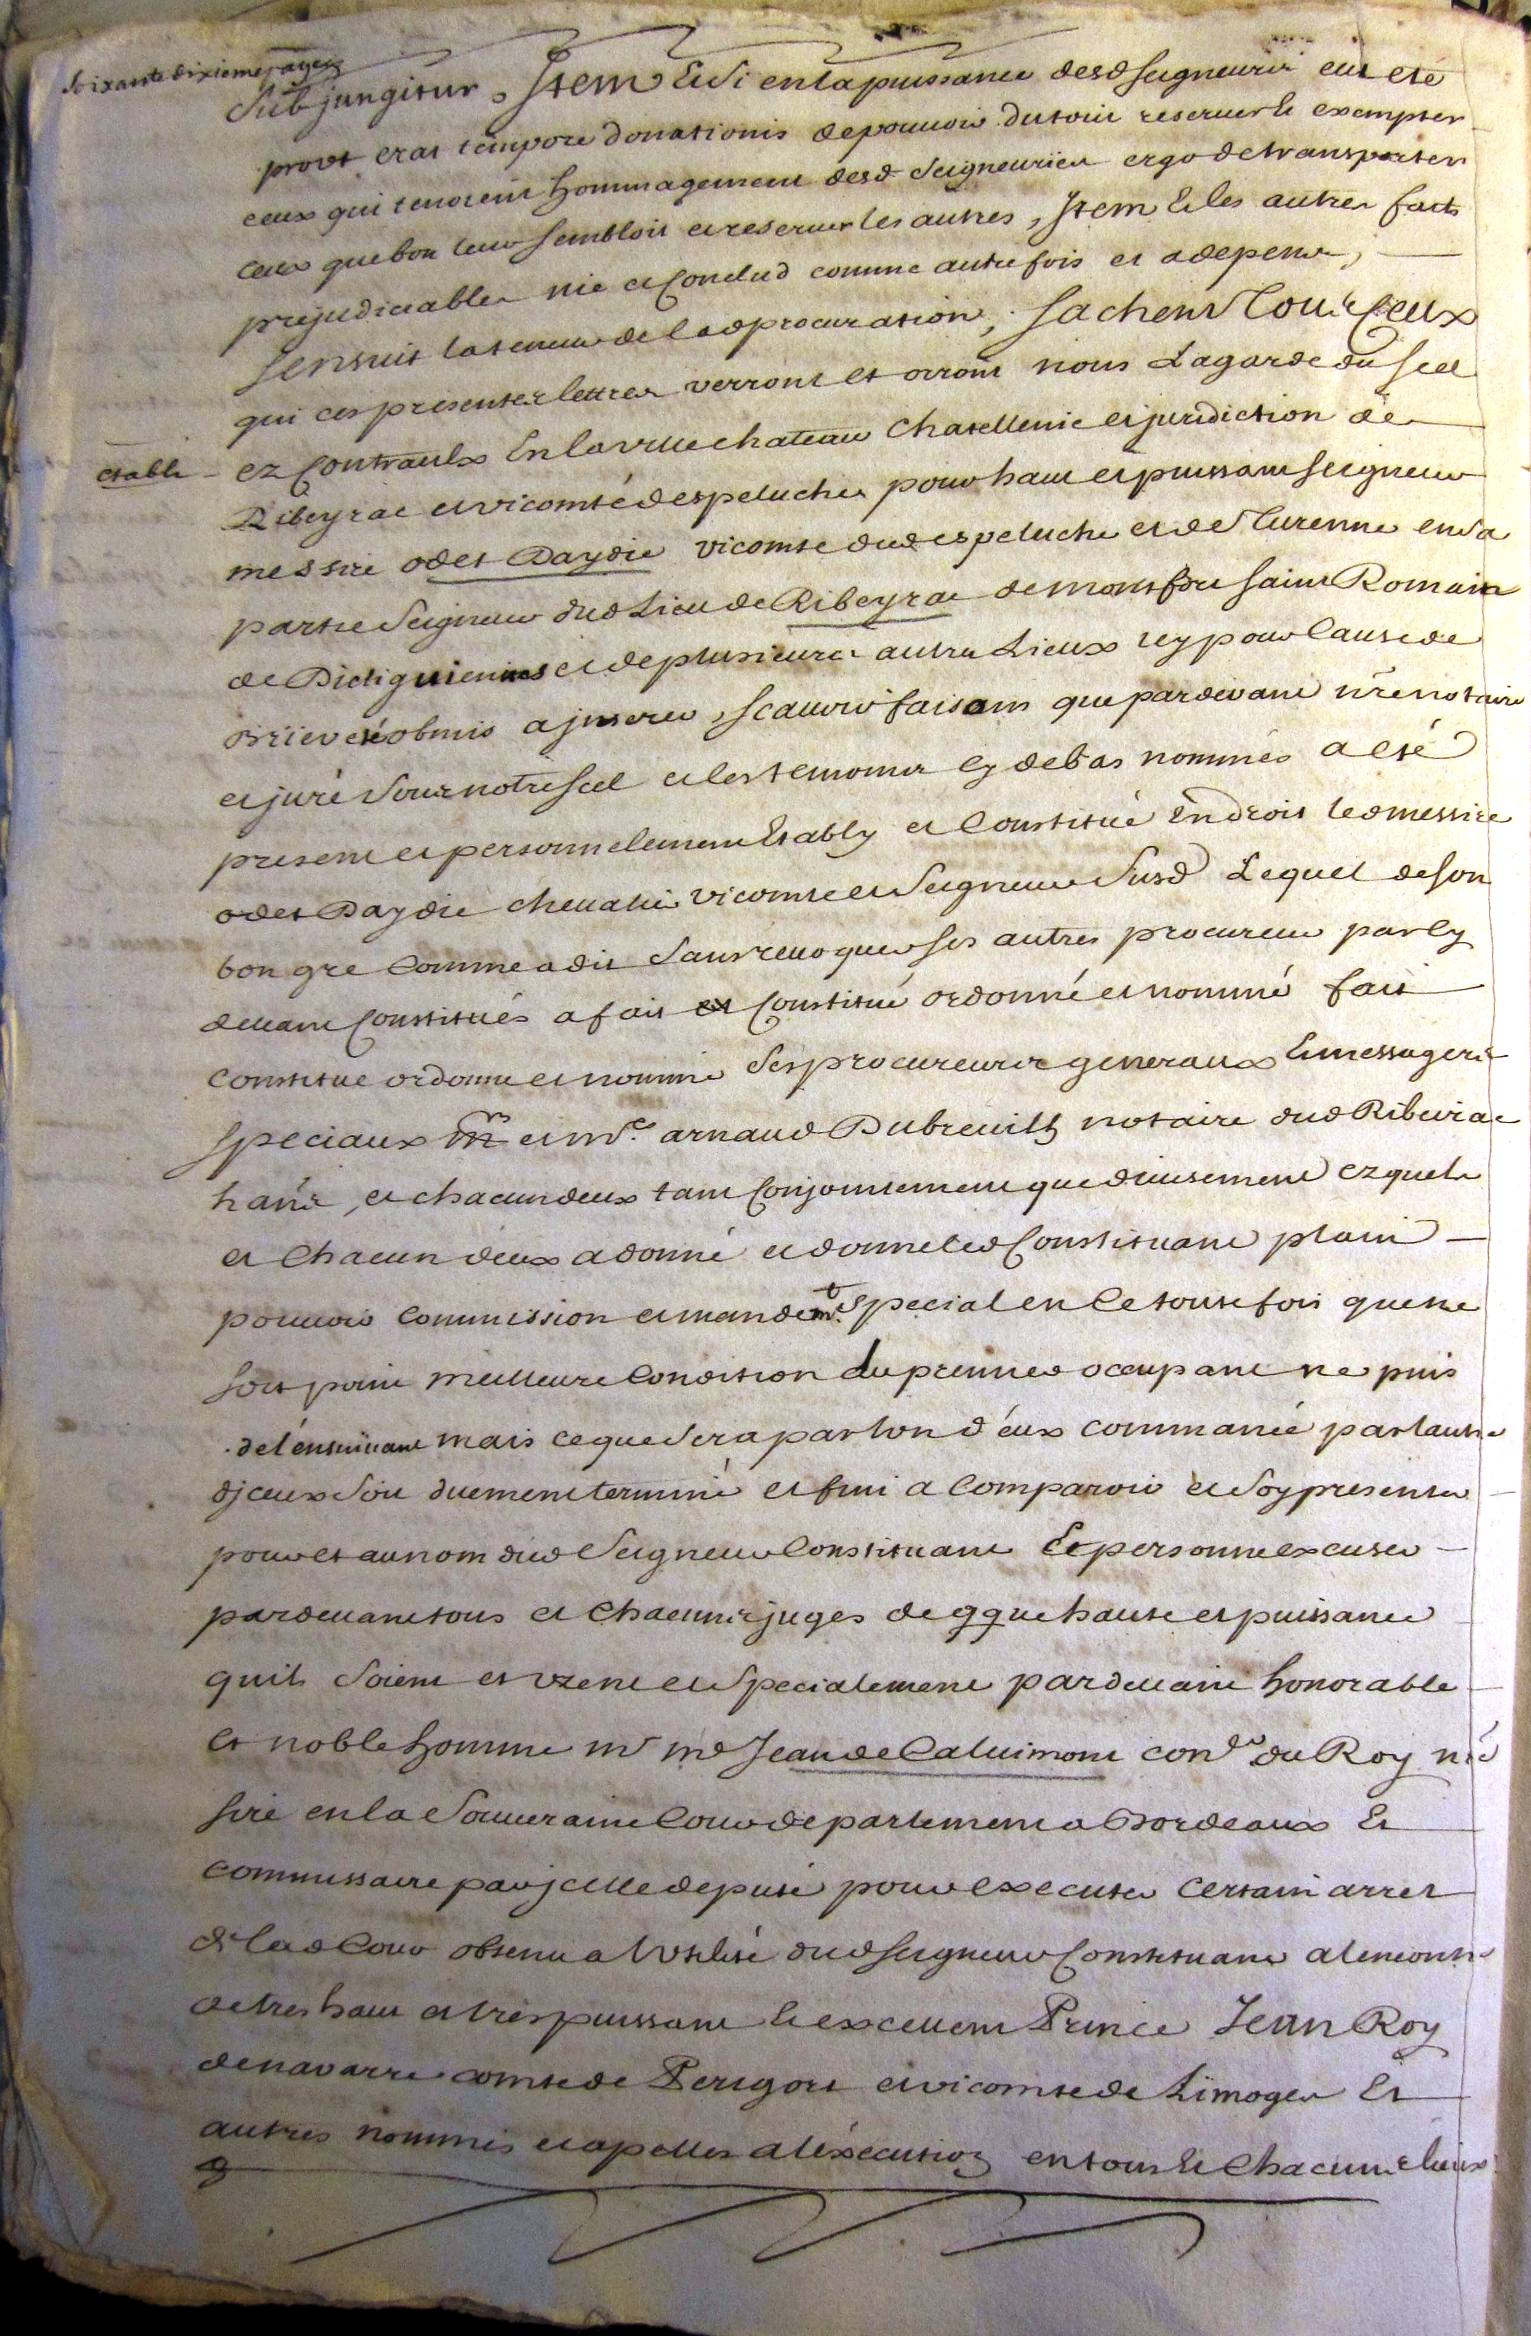 Soixante dixieme page
Subjungitur, Item Et si en la puissance desd seigneurs eut eté
prout erat tempore donationis de pouvoir du tout reserver et exempter
ceux qui tenoient hommagement desd Seigneuries ergo de transporter
ceux que bon leur sembloit et reserver les autres, Item Et les autres faits
prejudiciables nie et Conclud comme autrefois et a depens,
Sensuit la teneur de lad procuration, Sachent Tous Ceux
qui ces presentes lettres verront et orront nous La garde du Scel
etabli ez Contraulx En la ville chateau Chatellenie et juridiction de
Ribeyrac et vicomté despeluche pour haut et puissant Seigneur
messire odet Daydie vicomte dud espeluche et de Turenne en sa
partie Seigneur dud Lieu de Ribeyrac de Saint Romain
de et de plusieurs autres Lieux icy pour Cause de
Brieveté obmis a jnserer, Scauoir faisons que pardevant nre notaire
et juré Sous notre Scel et les temoins cy debas nommés a eté
present et personnelement Etably et Constitué En droit led messire
odet Daydie cheualier vicomte et Seigneur Susd Lequel de son
bon gre Comme a dit Sans reuoquer ses autres procureur par cy
deuant Constitués a fait et Constitué ordonné et nommé fait
constitue ordonne et nomme Ses procureurs generaux Et messagers
speciaux et me arnaud Dubreuilh notaire dud Ribeirac
et chacun deux tant Conjointement que diuisement ezquels
et Chacun deux a donné et donne led Constituant plain
pouuoir Commission et mandemt Special en Ce toutefois que ne
soit point meilleure Condition du premier occupant ne puis
de lensuiuant mais ce que Sera par lun d'eux commancé par lautre
djceux Soit duement terminé et fini a Comparoir et Soy presenter
pour et au nom dud Seigneur Constituant Et personne excuser
pardeuant tous et Chacuns juges de qque haute et puissance
quils Soient et vzent et Specialement pardeuant honorable
et noble homme mr me Jean de Caluimont coner du Roy nre
sire en la Souueraine Cour de parlement a Bordeaux Et
commissaire par jcelle deputé pour executer certain arret
de lad Cour obtenu a Lutilité dud Seigneur Constituant a lencontre
de tres haut et tres puissant Et excellent Prince Jean Roy
de navarre comte de Perigort et vicomte de Limoges Et
autres nommés et apelles a léxecution en tous Et Chacuns lieux